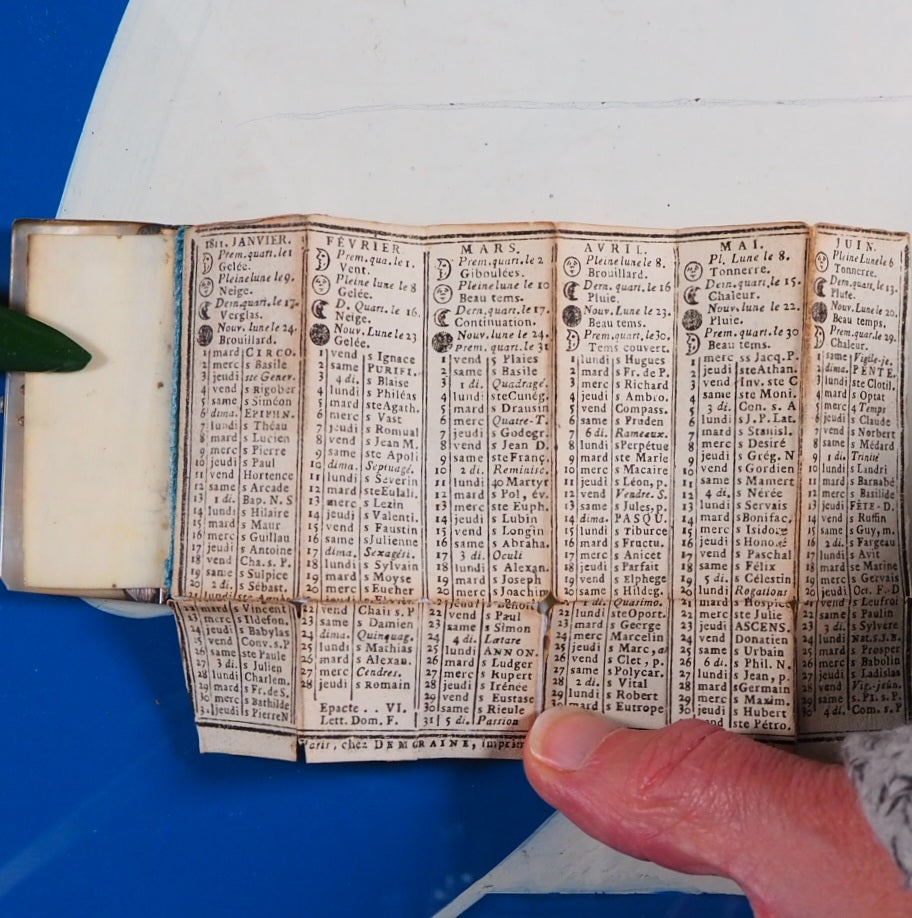 1811. JANVIER.
Prem. quart. le 1
Gelée.
Pleine lune le 9.
Neige.
Dern. quart. le 17.
Verglas.
Nouv. lune le 24.
Brouillard.
1 mard CIRCO.
2 merc s Basile
3 jeudi ste Genev.
4 vend s Rigober
5 same s Siméon
6 dima. EPIPHN.
7 lundi s Théau
8 mard s Lucien
9 merc s Pierre
10 jeudi s Paul
11 vend Hortence
12 same s Arcade
13 1 di. Bap. N. S
14 lundi s Hilaire
15 mard s Maur
16 merc s Guillau
17 jeudi s Antoine
18 vend Cha. s. P.
19 same s Sulpice
20 2 di. s Sébast.
22 mard s Vincent
23 merc s Ildefon.
24 jeudi s Babylas
25 vend Conv. s. P
26 same ste Paule
27 3 di. s Julien
28 lundi Charlem.
29 mard s Fr. de S.
30 merc s Bathilde
31 jeudi s Pierre N
FÉVRIER
Prem. qua. le 1.
Vent.
Pleine lune le 8
Gelée.
D. Quart le 16.
Neige.
Nouv. Lune le 23
Gelée.
1 vend s Ignace
2 same PURIFI.
3 4 di. s Blaise
4 lundi s Philéas
5 mard ste Agath.
6 merc s Vast
7 jeudi s Romual
8 vend s Jean M.
9 same ste Apoli
10 dima. Septuagé.
11 lundi s Severin
12 mard ste Eulali.
13 merc s Lezin
14 jeudi s Valenti.
15 vend s Faustin
16 same s Julienne
17 dima. Sexagési.
18 lundi s Sylvain
19 mard s Moyse
20 merc s Eucher
22 vend Chair. s. P
23 same s Damien
24 dima. Quinquag.
25 lundi s Mathias
26 mard s Alexan.
27 merc Cendres.
28 jeudi s Romain
Epacte . . VI.
Lett. Dom. F.
MARS.
Prem. quart. le 2
Giboulées.
Pleine lune le 10
Beau tems.
Dern. quart. le 17.
Continuation.
Nouv. lune le 24.
Prem. quart. le 31
1 vend s Plaies
2 same s Basile
3 1 di. Quadragé.
4 lundi ste Cunég.
5 mard s Drausin
6 merc Quatre-T.
7 jeudi s Godegr.
8 vend s Jean D.
9 same ste Franç.
10 2 di. Reminisc.
11 lundi 40 Martyr
12 mard s Pol, év.
13 merc ste Euph.
14 jeudi s Lubin
15 vend s Longin
16 same s Abraha.
17 3 di. Oculi
18 lundi s Alexan.
19 mard s Joseph
20 merc s Joachin
22 vend s Paul
23 same s Simon
24 4 di. Lætare
25 lundi ANNON.
26 mard s Ludger
27 merc s Rupert
28 jeudi s Irénée
29 vend s Eustase
30 same s Rieule
31 5 di. Passion
AVRIL.
Pleine lune le 8.
Brouillard.
Dern. quart. le 16
Pluie.
Nouv. lune le 23.
Beau tems.
Prem. quart. le 30.
Tems couvert.
1 lundi s Hugues
2 mard s Fr. de P.
3 merc s Richard
4 jeudi s Ambro.
5 vend Compass.
6 same s Pruden
7 6 di. Rameaux.
8 lundi s Perpétue
9 mard ste Marie
10 merc s Macaire
11 jeudi s Léon, p.
12 vend Vendre. S.
13 same s Jules, p.
14 dima. PASQU.
15 lundi s Tiburce
16 mard s Fructu.
17 merc s Anicet
18 jeudi s Parfait
19 vend s Elphege
20 same s Hildeg.
21 1 di. Quasimo.
22 lundi ste Oport.
23 mard s George
24 merc Marcelin
25 jeudi s Marc,
26 vend s Clet, p.
27 same s Polycar.
28 2 di. s Vital
29 lundi s Robert
30 mard s Eutrope
MAI.
Pl. Lune le 8.
Tonnerre.
Dern. quart. le 15.
Chaleur.
Nouv. lune le 22.
Pluie.
Prem. quart. le 30
Beau tems.
1 merc ss Jacq. P.
2 jeudi ste Athan.
3 vend Inv. ste C
4 same ste Moni.
5 3 di. Con. s. A
6 lundi s J. P. Lat.
7 mard s Stanisl.
8 merc s Desiré
9 jeudi s Grég. N
10 vend s Gordien
11 same s Mamert
12 4 di. s Nérée
13 lundi s Servais
14 mard s Bonifac.
15 merc s Isidore
16 jeudi s Honoré
17 vend s Paschal
18 same s Félix
19 5 di. s Célestin
20 lundi Rogations
21 mard s Hospice
22 merc ste Julie
23 jeudi ASCENS.
24 vend Donatien
25 same s Urbain
26 6 di. s Phil. N.
27 lundi s Jean, p.
28 mard s Germain
29 merc s Maxim.
30 jeudi s Hubert
vend ste Pétro.
JUIN.
Pleine Lune le 6
Tonnerre.
Dern. quart. le 13.
Pluie.
Nouv. Lune le 20.
Beau temps.
Prem. quar. le 29.
Chaleur.
1 same Vigile-je.
2 dima. PENTE.
3 lundi ste Clotil.
4 mard s Optat
5 merc 4 Temps
6 jeudi s Claude
7 vend s Norbert
8 same s Médard
9 1 di. Trinité
10 lundi s Landri
11 mard s Barnabé
12 merc s Basilide
13 jeudi FÊTE-D.
14 vend s Ruffin
15 same s Guy, m.
16 2 di. s Fargeau
17 lundi s Avit
18 mard se Marine
19 merc s Gervais
20 jeudi Oct. F.-D
21 vend s Leufroi
22 same s Paulin
23 3 di. s Sylvere
24 lundi Nat. s. J.B.
25 mard s Prosper
26 merc s Babolin
27 jeudi s Ladislas
28 vend Vig.-jeûn.
29 same s. Pi. s. P.
30 4 di. Com. s. P
Paris, chez DEMORAINE, Imprim